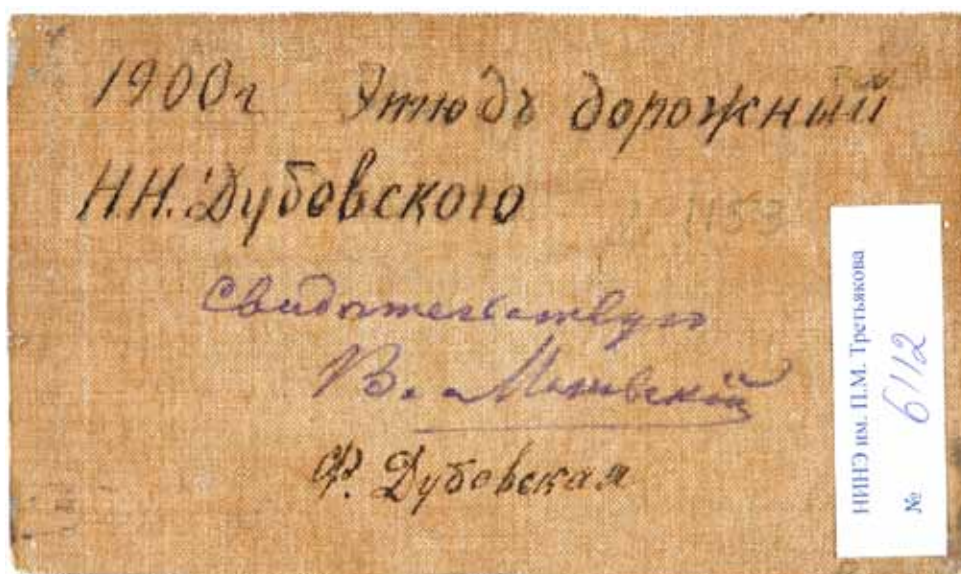 1900 г Этюдъ дорожный
Н.Н. Дубовского
1153
Свидетельствую
В. Маковскій
Ф. Дубовская
НИНЭ им. П.М. Третьякова
№ 6112